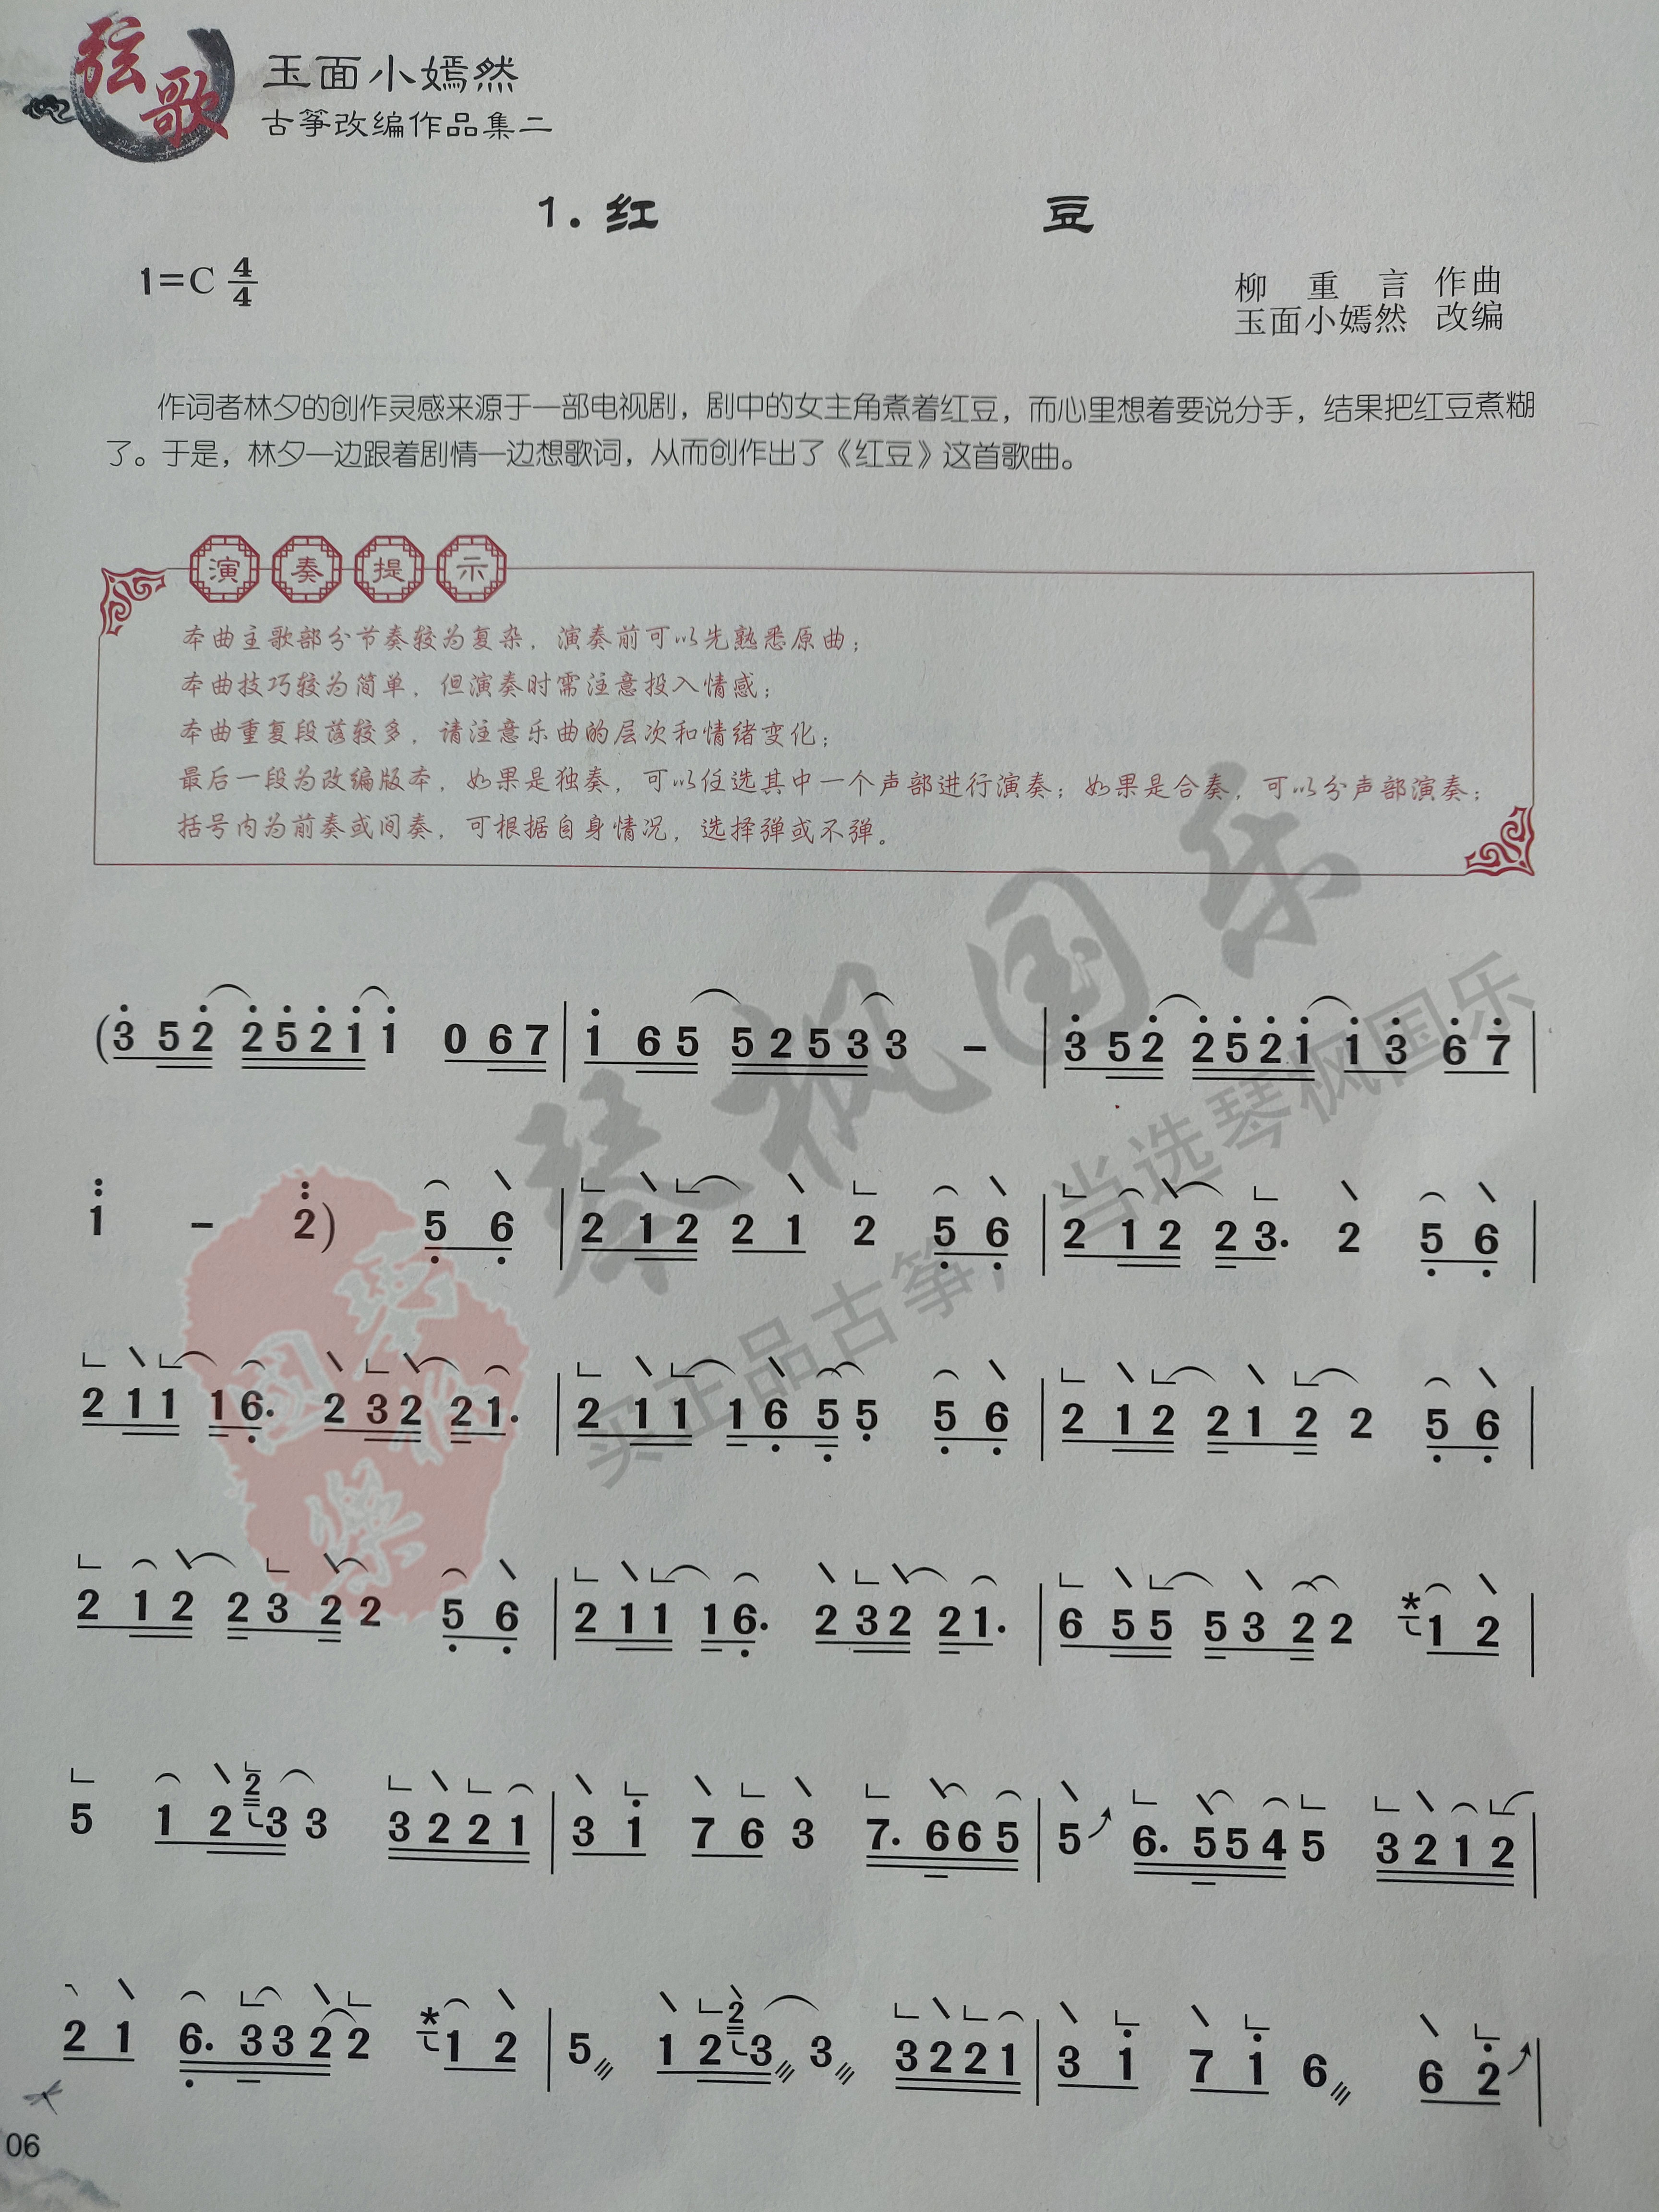 弦歌
玉面小嫣然
古筝改编作品集二
1.红 豆
1=C 4/4
柳 重 言 作曲
玉面小嫣然 改编
作词者林夕的创作灵感来源于一部电视剧，剧中的女主角煮着红豆，而心里想着要说分手，结果把红豆煮糊
了。于是，林夕一边跟着剧情一边想歌词，从而创作出了《红豆》这首歌曲。
演奏提示
本曲主歌部分节奏较为复杂，演奏前可以先熟悉原曲；
本曲技巧较为简单，但演奏时需注意投入情感；
本曲重复段落较多，请注意乐曲的层次和情绪变化；
最后一段为改编版本，如果是独奏，可以任选其中一个声部进行演奏；如果是合奏，可以分声部演奏；
括号内为前奏或间奏，可根据自身情况，选择弹或不弹。
(3 5 2 2 5 2 1 1 0 6 7 | 1 6 5 5 2 5 3 3 - | 3 5 2 2 5 2 1 1 3 6 7 |
1 - 2) 5 6 | 2 1 2 2 1 2 5 6 | 2 1 2 2 3. 2 5 6 |
2 1 1 1 6. 2 3 2 2 1. | 2 1 1 1 6 5 5 5 6 | 2 1 2 2 1 2 2 5 6 |
2 1 2 2 3 2 2 5 6 | 2 1 1 1 6. 2 3 2 2 1. | 6 5 5 5 3 2 2 * 1 2 |
5 1 2 2 3 3 3 2 2 1 | 3 1 7 6 3 7. 6 6 5 | 5 6. 5 5 4 5 3 2 1 2 |
2 1 6. 3 3 2 2 * 1 2 | 5 1 2 2 3 3 3 2 2 1 | 3 1 7 1 6 6 2 |
06
琴枫国乐
买正品古筝，当选琴枫国乐